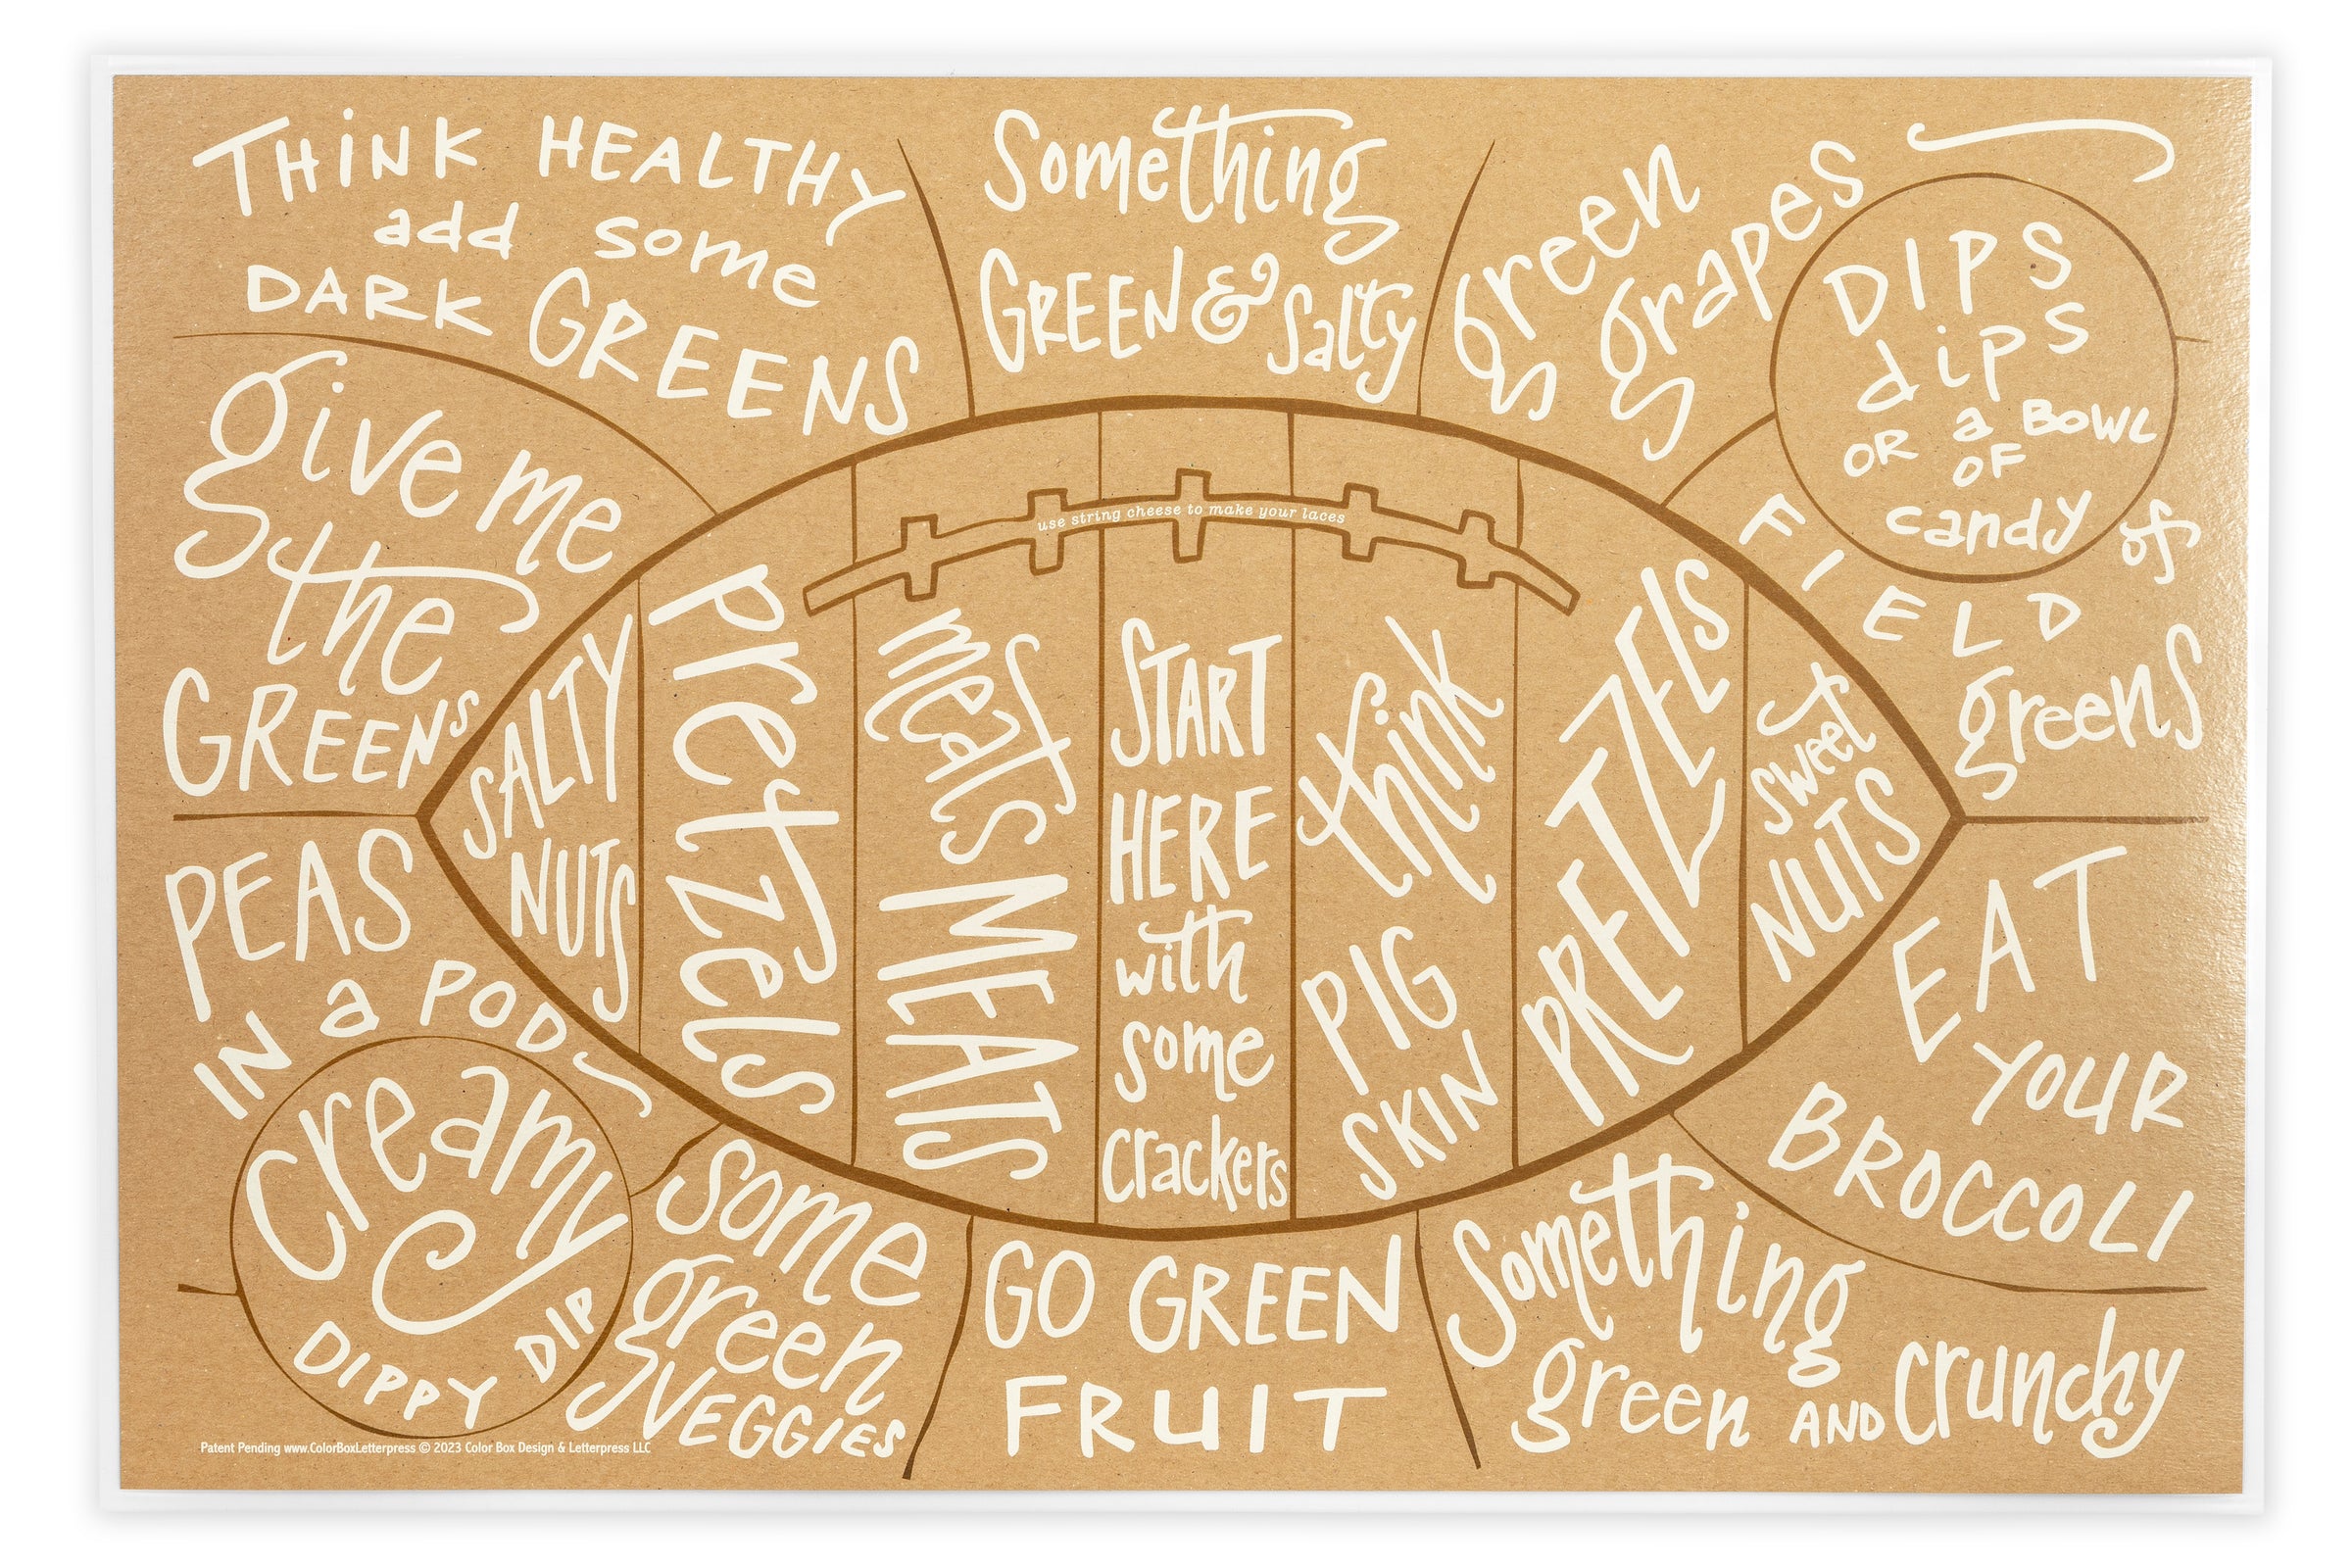 THiNK HEALTHY
add some
DARK GREENS
Something
GREEN & Salty
green
grapes
DIPS
dips
OR a BOWL
OF
candy
give me
the
GREENS
use string cheese to make your laces
FIELD of
greens
SALTY
NUTS
pretzels
meats MEATS
START
HERE
with
some
crackers
think
PIG
SKIN
PRETZELS
sweet
NUTS
PEAS
IN a POD
EAT
YOUR
BROCCOLI
Creamy
DIPPY DIP
Some
green
VEGGIES
GO GREEN
FRUIT
Something
green AND crunchy
Patent Pending www.ColorBoxLetterpress © 2023 Color Box Design & Letterpress LLC